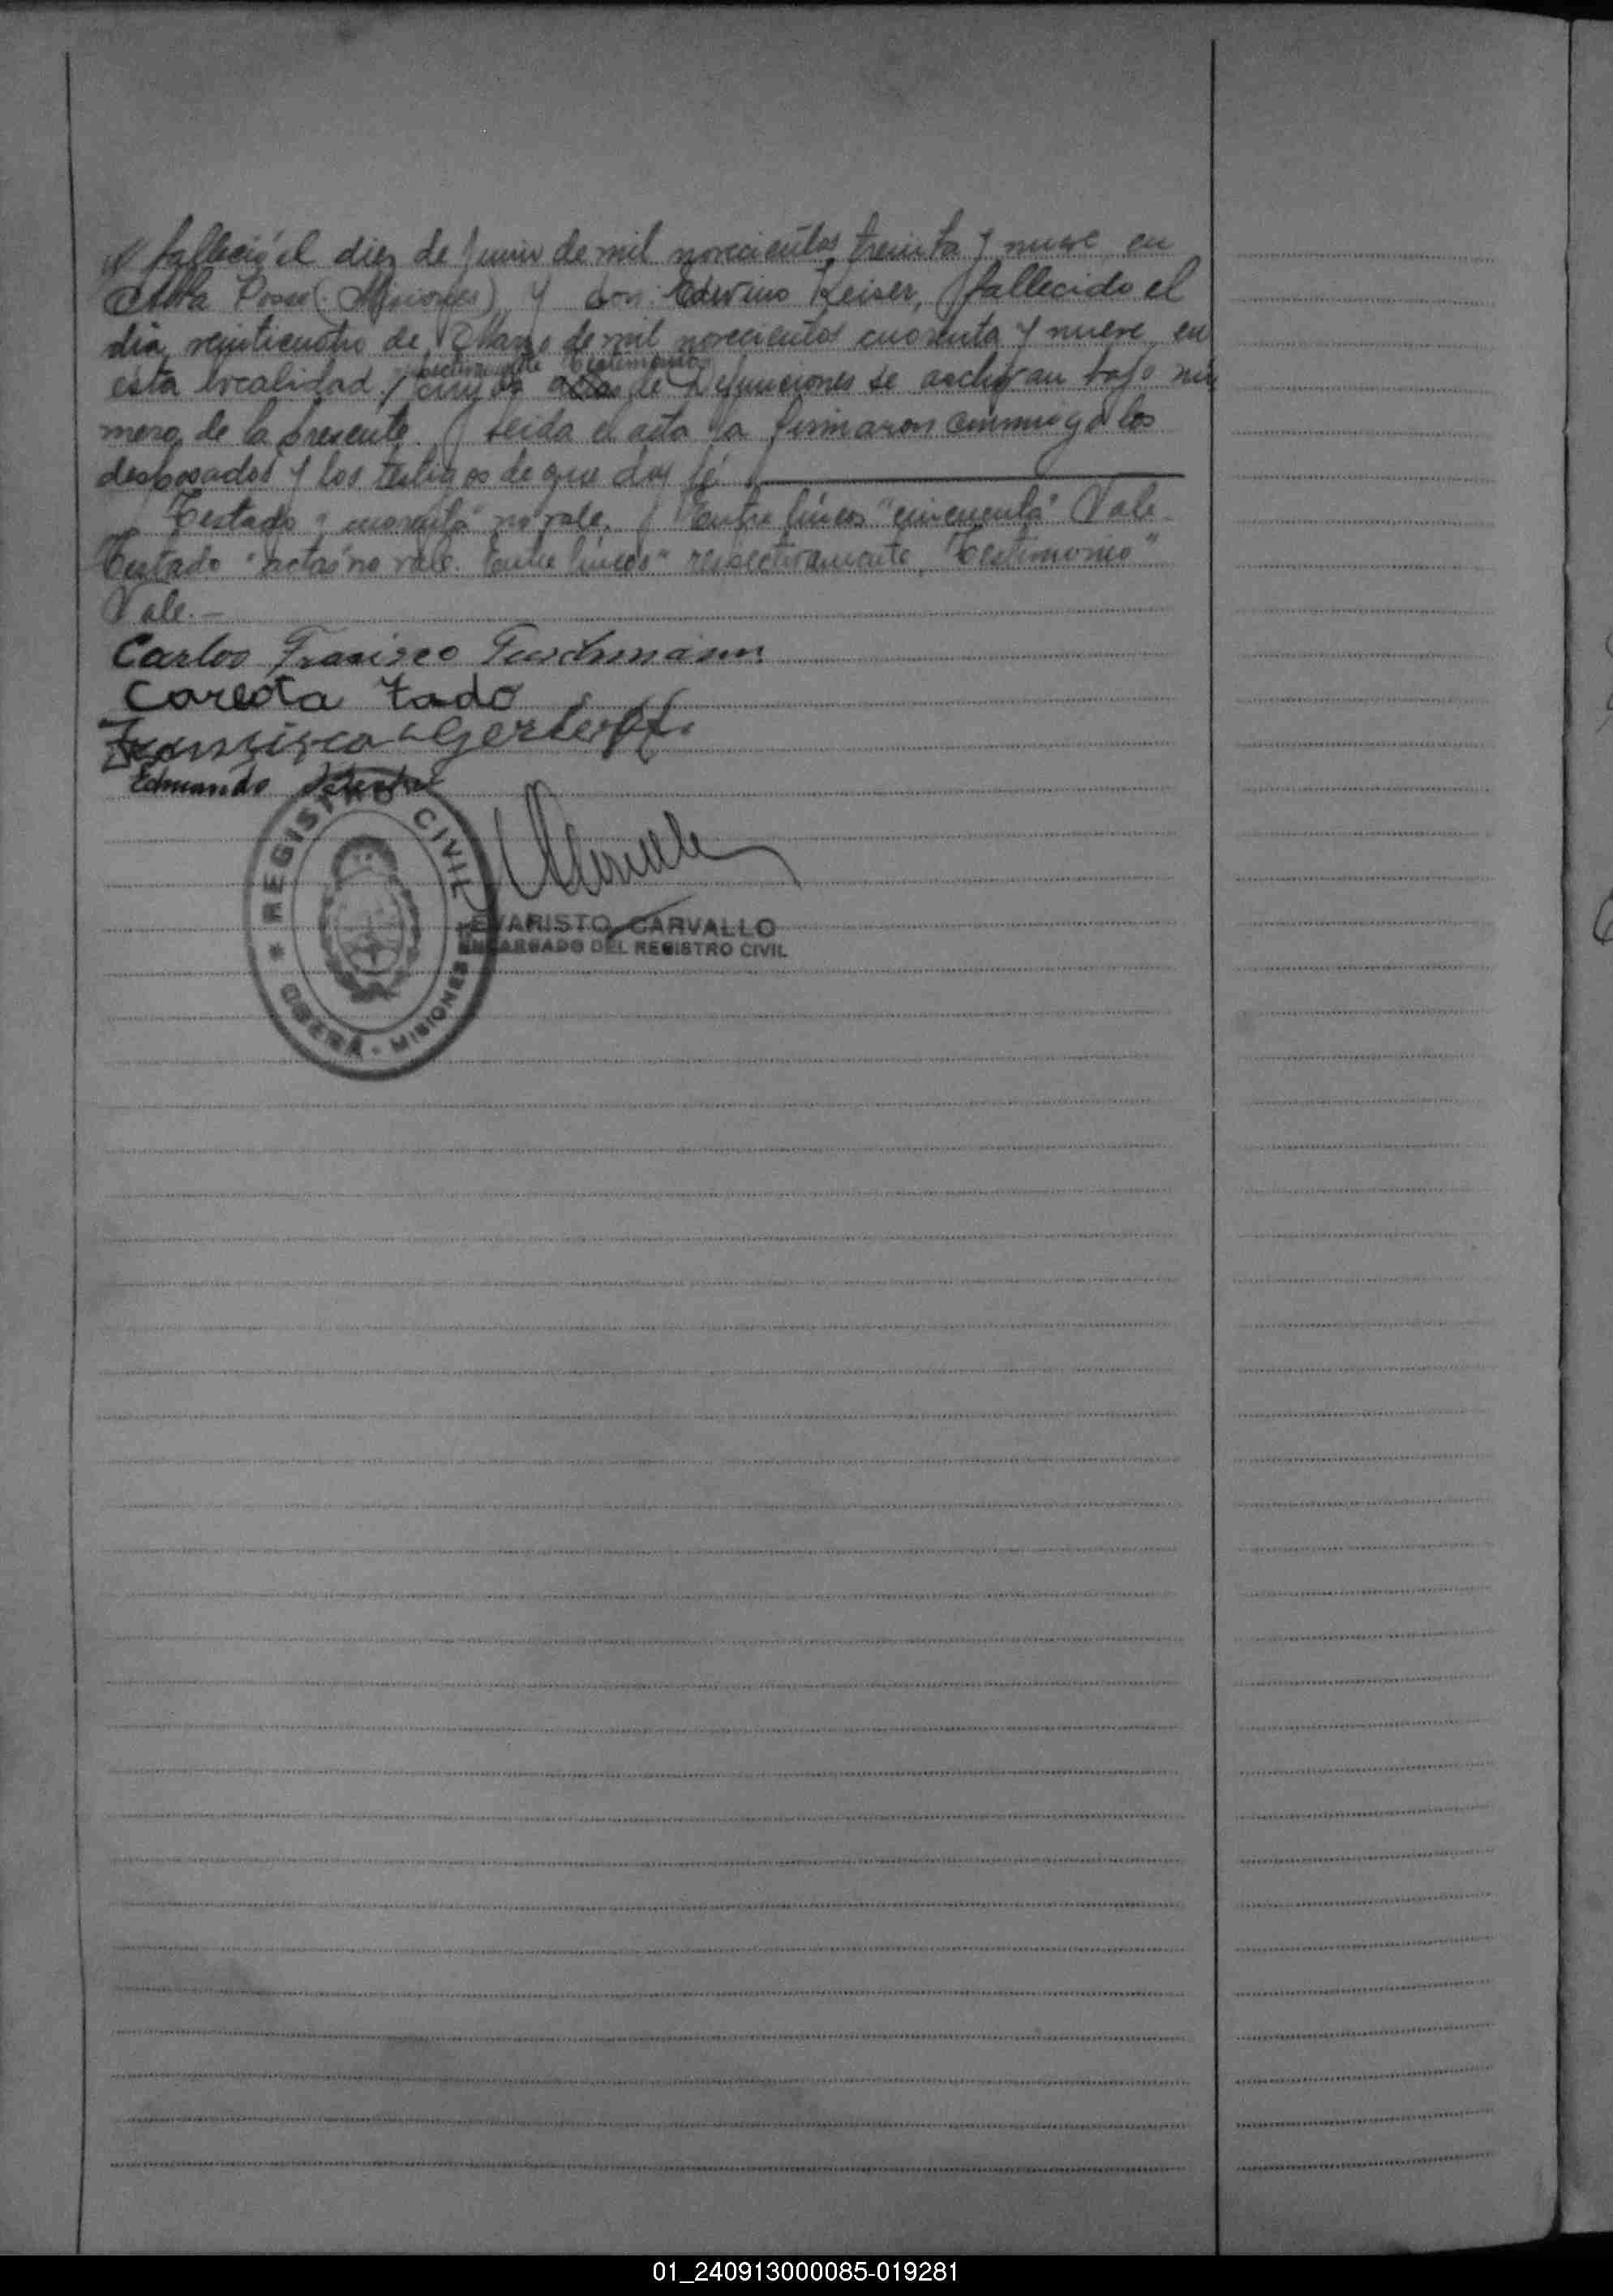 falleció el diez de Junio de mil novecientos treinta y nueve en
Alba Posse (Misiones) y don Edwino Keiser, fallecido el
dia veinticuatro de Marzo de mil novecientos cuarenta y nueve en
respectivamente Testimonios
esta localidad, cuyos actas de Defunciones se archivan bajo nú
mero de la presente. Leida el acta la firmaron conmigo los
desposados y los testigos de que doy fé
Testado "cuarenta" no vale. Entre líneas "cincuenta" Vale.
Testado "actas" no vale. Entre líneas "respectivamente, Testimonios"
Vale.-
Carlos Francisco
Carlota Zado
Francisco
Edmundo
REGISTRO CIVIL
OBERÁ - MISIONES
EVARISTO CARVALLO
ENCARGADO DEL REGISTRO CIVIL
01_240913000085-019281